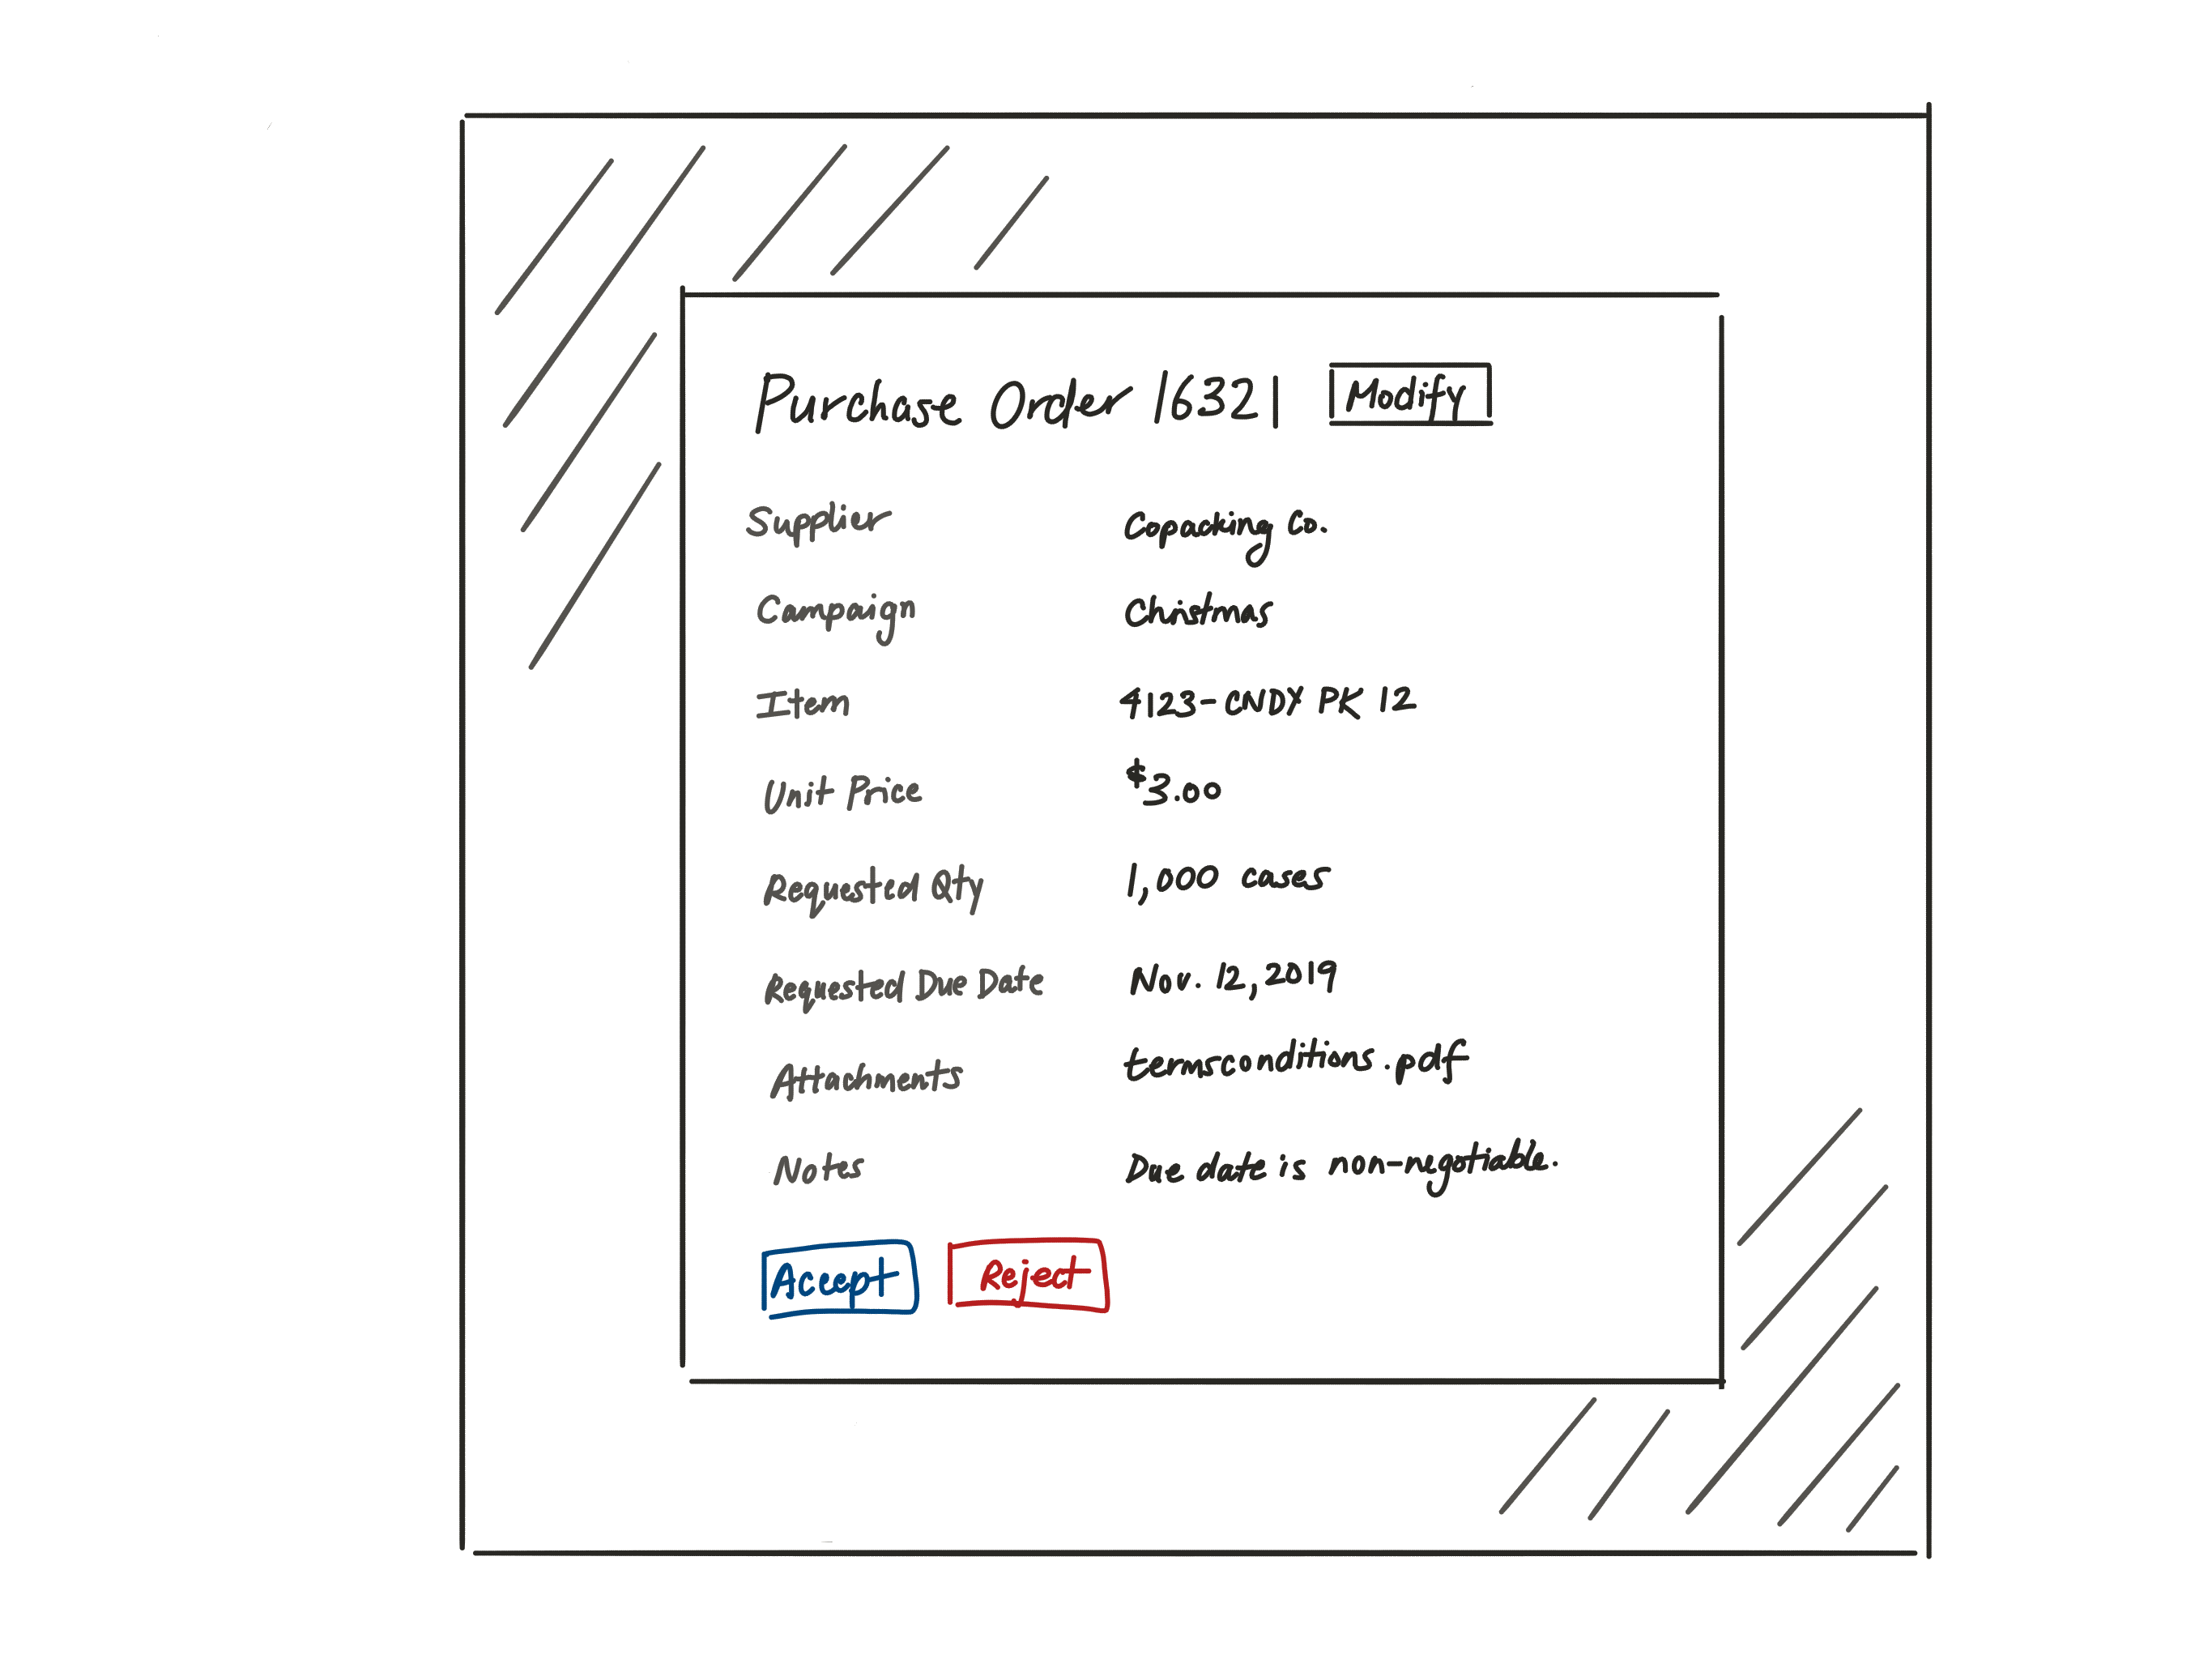 Purchase Order 16321 Modify
Supplier Copacking Co.
Campaign Chistmas
Item 4123-CNDY PK 12
Unit Price $3.00
Requested Qty 1,000 cases
Requested Due Date Nov. 12, 2019
Attachments termsconditions.pdf
Notes Due date is non-negotiable.
Accept Reject